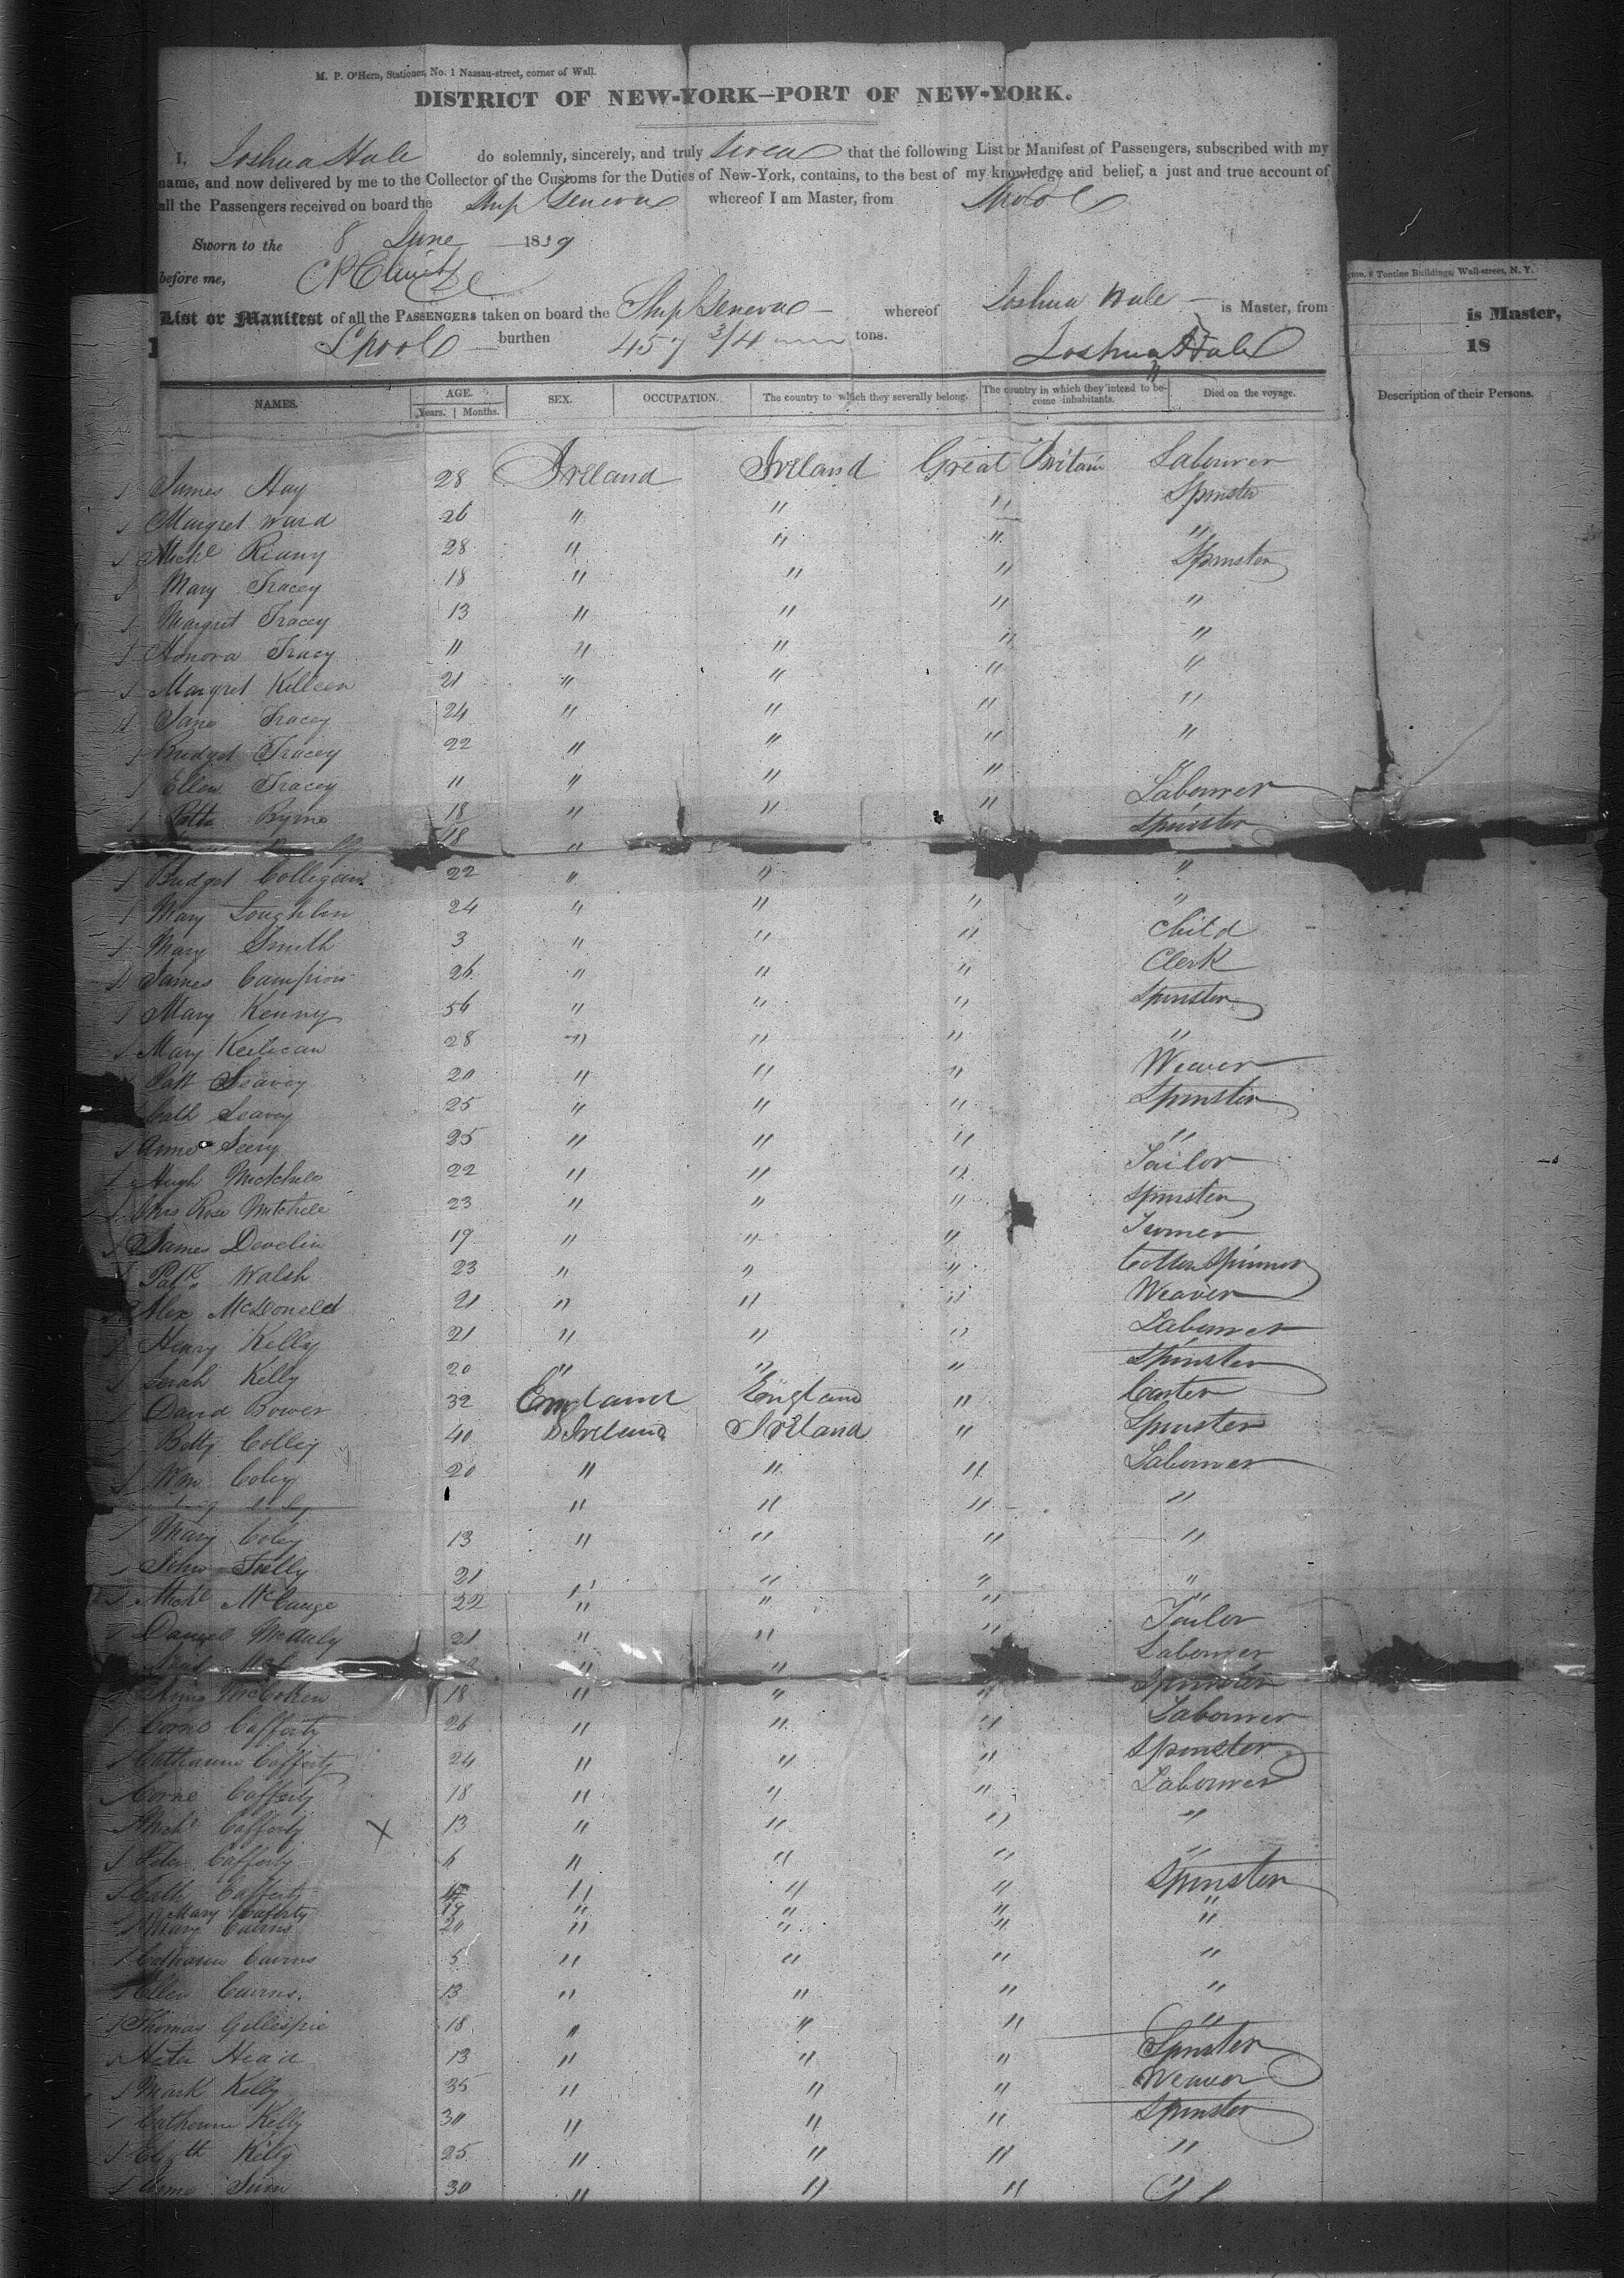 M. P. O'Hern, Stationer, No. 1 Nassau-street, corner of Wall.
DISTRICT OF NEW-YORK—PORT OF NEW-YORK.
I, Joshua Hale do solemnly, sincerely, and truly swear that the following List or Manifest of Passengers, subscribed with my
name, and now delivered by me to the Collector of the Customs for the Duties of New-York, contains, to the best of my knowledge and belief, a just and true account of
all the Passengers received on board the Ship Geneva whereof I am Master, from Lpool
Sworn to the 8 June 1839
before me,
List or Manifest of all the PASSENGERS taken on board the Ship Geneva whereof Joshua Hale is Master, from
Lpool burthen 457 3/4 tons. Joshua Hale
Tontine Buildings, Wall-street, N. Y.
is Master,
18
NAMES. AGE. Years. | Months. SEX. OCCUPATION. The country to which they severally belong. The country in which they intend to become inhabitants. Died on the voyage. Description of their Persons.
James Hay 28 Ireland Ireland Great Britain Labourer
Margret Ward 26 " " " Spinster
Michl 28 " " " "
Mary Tracey 18 " " " Spinster
Margret Tracey 13 " " " "
Honora Tracy 11 " " " "
Margret Killeen 21 " " " "
Jane Tracey 24 " " " "
Bridget Tracey 22 " " " "
Ellen Tracey 11 " " " "
Byrne 18 " " " Labourer
18 " Spinster
Bridget Colligan 22 " " "
Mary Loughlin 24 " " " "
Mary Smith 3 " " " Child
James Campion 26 " " " Clerk
Mary Kenny 56 " " " Spinster
Mary 28 " " " "
Patt Seavey 20 " " " Weaver
Cath Seavey 25 " " " Spinster
Anne Seery 25 " " " "
Hugh Mitchele 22 " " " Tailor
Mrs Rose Mitchele 23 " " " Spinster
James Develin 19 " " "
Patk Walsh 23 " " " Cotton Spinner
Alex McDoneld 21 " " " Weaver
Henry Kelly 21 " " " Labourer
Sarah Kelly 20 " " " Spinster
David Bower 32 England England " Carter
Betty Colley 40 Ireland Ireland " Spinster
Wm Coley 20 " " " Labourer
" " " "
Mary Coley 13 " " " "
John 21 " " "
Michl 22 " " " "
Daniel McAuly 21 " " " Tailor
" " Labourer
Anne 18 " " " Spinster
Corne Cafferty 26 " " " Labourer
Catharine Cafferty 24 " " " Spinster
Corne Cafferty 18 " " " Labourer
Michl Cafferty X 13 " " " "
Peter Cafferty " " " "
Cath Cafferty " " " Spinster
Mary Cafferty 19 " " " "
Mary Cairns 20 " " "
Catharin Cairns 5 " " " "
Ellen Cairns 13 " " " "
Thomas Gillespie 18 " " " "
Head 13 " " " Spinster
Mark Kelly 35 " " " Weaver
Catherine Kelly 30 " " " Spinster
Elizth Kelly 25 " " " "
Anne 30 " " "